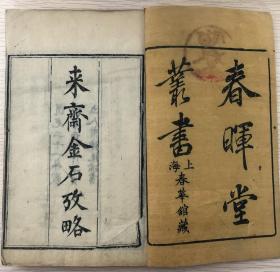 春暉堂
叢書
上海春華館藏
来齋金石攷略